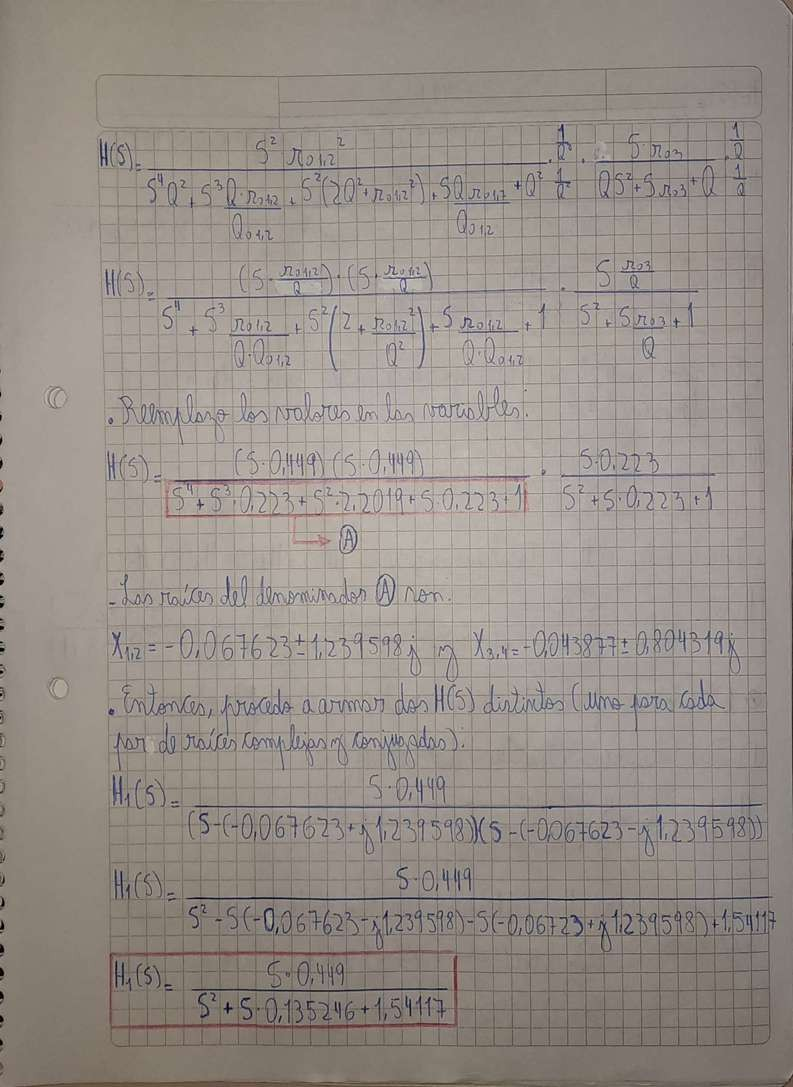 H(S) = S² r₀₁,₂² / (S⁴Q² + S³Q·r₀₁,₂/Q₀₁,₂ + S²(2Q² + r₀₁,₂²) + SQ r₀₁,₂/Q₀₁,₂ + Q²) · (1/Q²)/(1/Q²) · S·r₀₃/(QS² + S r₀₃ + Q) · (1/Q)/(1/Q)
H(S) = (S·r₀₁,₂/Q)·(S·r₀₁,₂/Q) / (S⁴ + S³ r₀₁,₂/(Q·Q₀₁,₂) + S²(2 + r₀₁,₂²/Q²) + S r₀₁,₂/(Q·Q₀₁,₂) + 1) · S r₀₃/Q / (S² + S r₀₃/Q + 1)
. Reemplazo los valores en las variables:
H(S) = (S·0,449)(S·0,449) / (S⁴ + S³·0,223 + S²·2,2019 + S·0,223 + 1) · S·0,223 / (S² + S·0,223 + 1)
A
- Las raíces del denominador A son:
X₁,₂ = -0,067623 ± 1,239598j y X₃,₄ = -0,043877 ± 0,804319j
. Entonces, procedo a armar dos H(S) distintos (uno para cada
par de raíces complejas y conjugadas):
H₁(S) = S·0,449 / (S-(-0,067623+j1,239598))(S-(-0,067623-j1,239598))
H₁(S) = S·0,449 / S² - S(-0,067623-j1,239598) - S(-0,06723+j1,239598) + 1,54117
H₁(S) = S·0,449 / S² + S·0,135246 + 1,54117